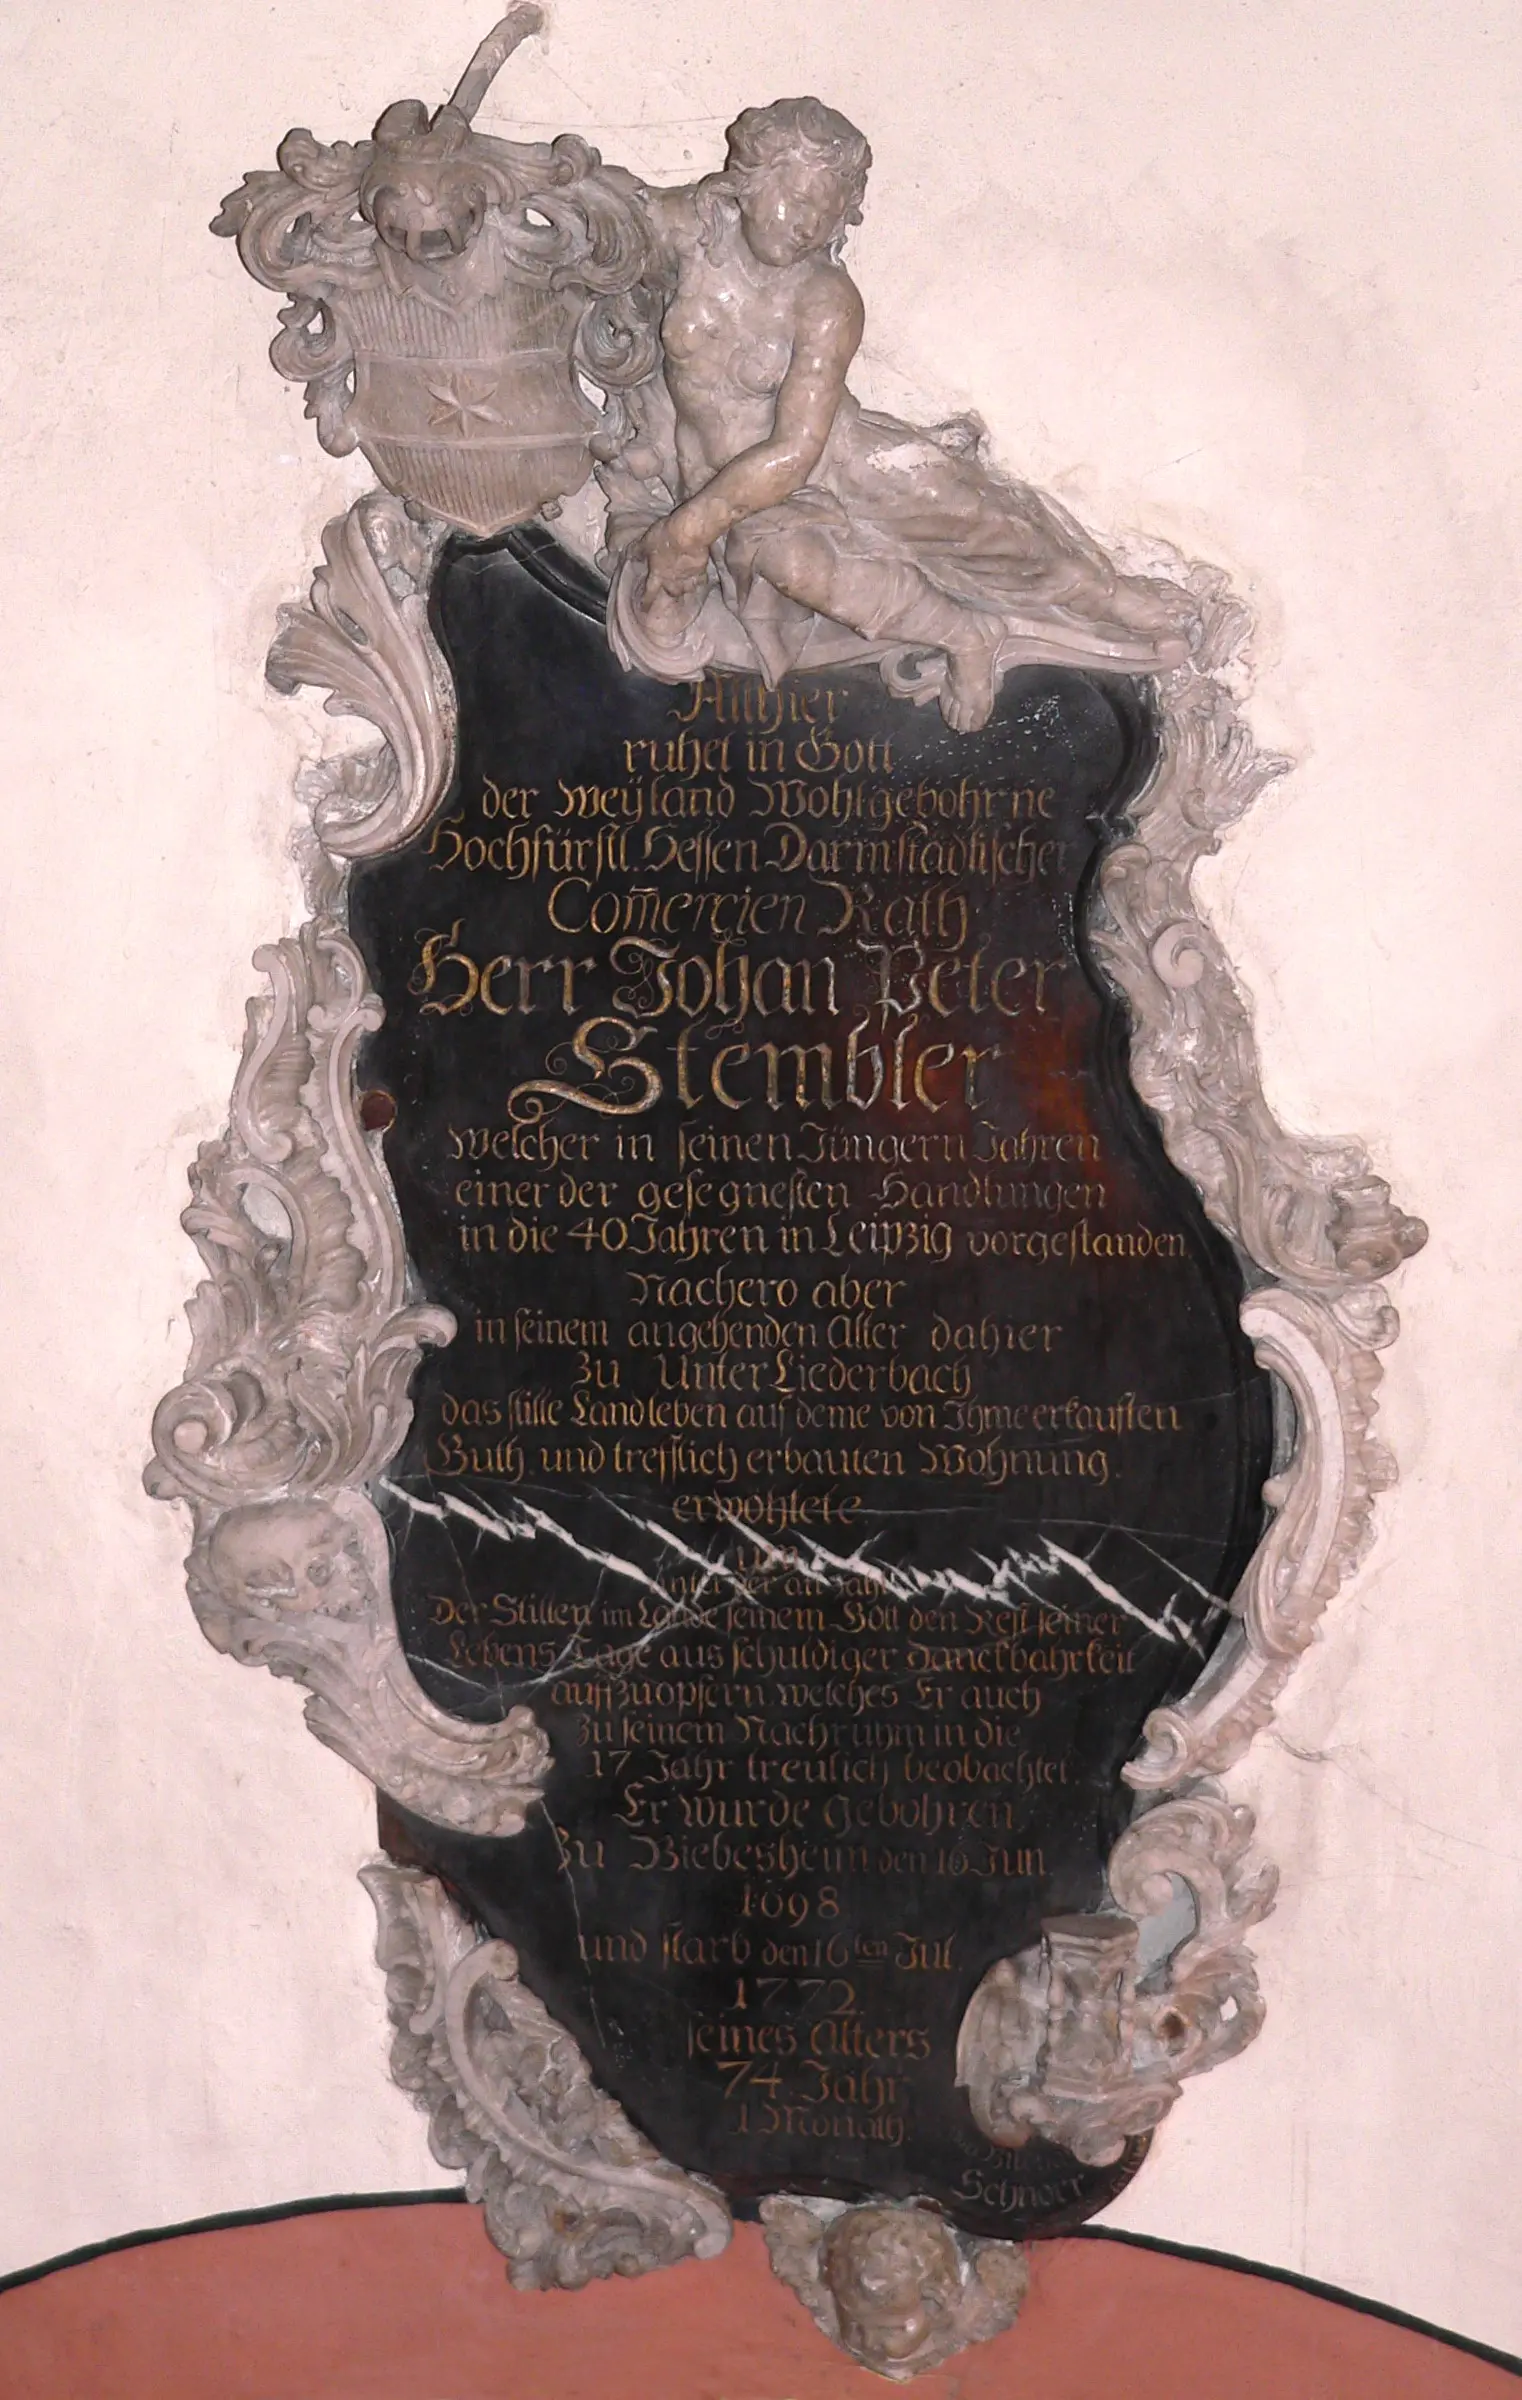 Allhier
ruhet in Gott
der weÿland Wohlgebohrne
Hochfürstl. Hessen Darmstädtischer
Com̅ercien Rath
Herr Johan Peter
Stembler
welcher in seinen Jüngern Jahren
einer der gesegnesten Handlungen
in die 40 Jahren in Leipzig vorgestanden.
Nachero aber
in seinem angehenden Alter dahier
zu Unter Liederbach
das stille Landleben auf deme von Ihme erkauften
Guth und trefflich erbauten Wohnung.
erwöhlete
um
unter der an Zahl
Der Stillen im Lande seinem Gott den Rest seiner
Lebens Tage aus schuldiger Danckbahrkeit
auffzuopfern welches Er auch
zu seinem Nachruhm in die
17 Jahr treulich beobachtet.
Er wurde gebohren
zu Biebesheim den 16 Jun.
1698
und starb den 16ten Jul.
1772.
seines Alters
74. Jahr
1 Monath.
Schnorr